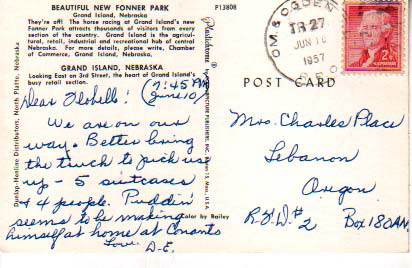 BEAUTIFUL NEW FONNER PARK
Grand Island, Nebraska
They're off! The horse racing at Grand Island's new
Fonner Park attracts thousands of visitors from every
section of the country. Grand Island is the agricul-
tural, retail, industrial and recreational hub of central
Nebraska. For more details, please write, Chamber
of Commerce, Grand Island, Nebraska.
GRAND ISLAND, NEBRASKA
Looking East on 3rd Street, the heart of Grand Island's
busy retail section.
P13808
Dunlap-Henline Distributors, North Platte, Nebraska
Plastichrome
Color by Bailey
7:45 PM
(June 10)
We are on our
way. Better bring
the truck to pick us
up - 5 suitcases
+ 4 people. Puddin'
seems to be making
himself at home at Conants
Love D.E.
OM. & OGDEN
TR 27
JUN 10
1957
R.P.O.
2¢
POST CARD
Mrs. Charles Place
Lebanon
Oregon
R.F.D. #2 Box 180AM